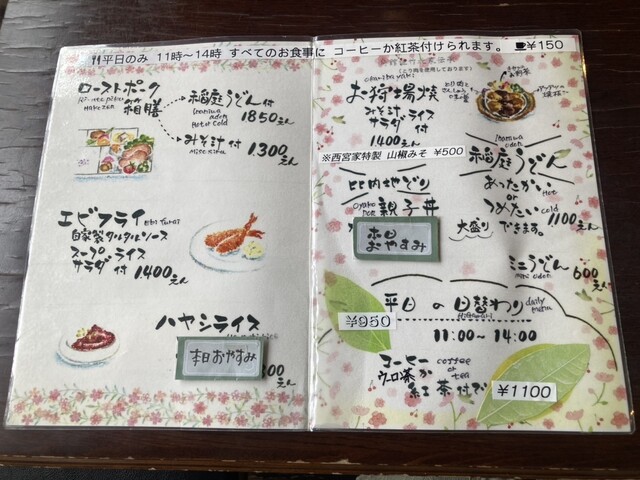 平日のみ 11時〜14時 すべてのお食事に コーヒーか紅茶付けられます。 ¥150
ローストポーク
箱膳
Hakozen
稲庭うどん付
Inaniwa
udon
Hot or Cold
1850えん
みそ汁付
1300えん
エビフライ
自家製タルタルソース
スープ ライス
サラダ 付 1400えん
ハヤシライス
本日おやすみ
えん
お狩場焼
みそ汁 ライス
サラダ 付
1400えん
※西宮家特製 山椒みそ ¥500
比内地どり
Oyako
Don
親子丼
本日
おやすみ
Inaniwa
Udon
稲庭うどん
あったかい Hot
or
つめたい Cold
1100えん
大盛りできます。
ミニうどん
mini udon
600えん
平日の日替わり daily
menu
Higawari
¥950
11:00〜14:00
コーヒー coffee
or
tea
ウーロン茶か
紅茶付で
¥1100